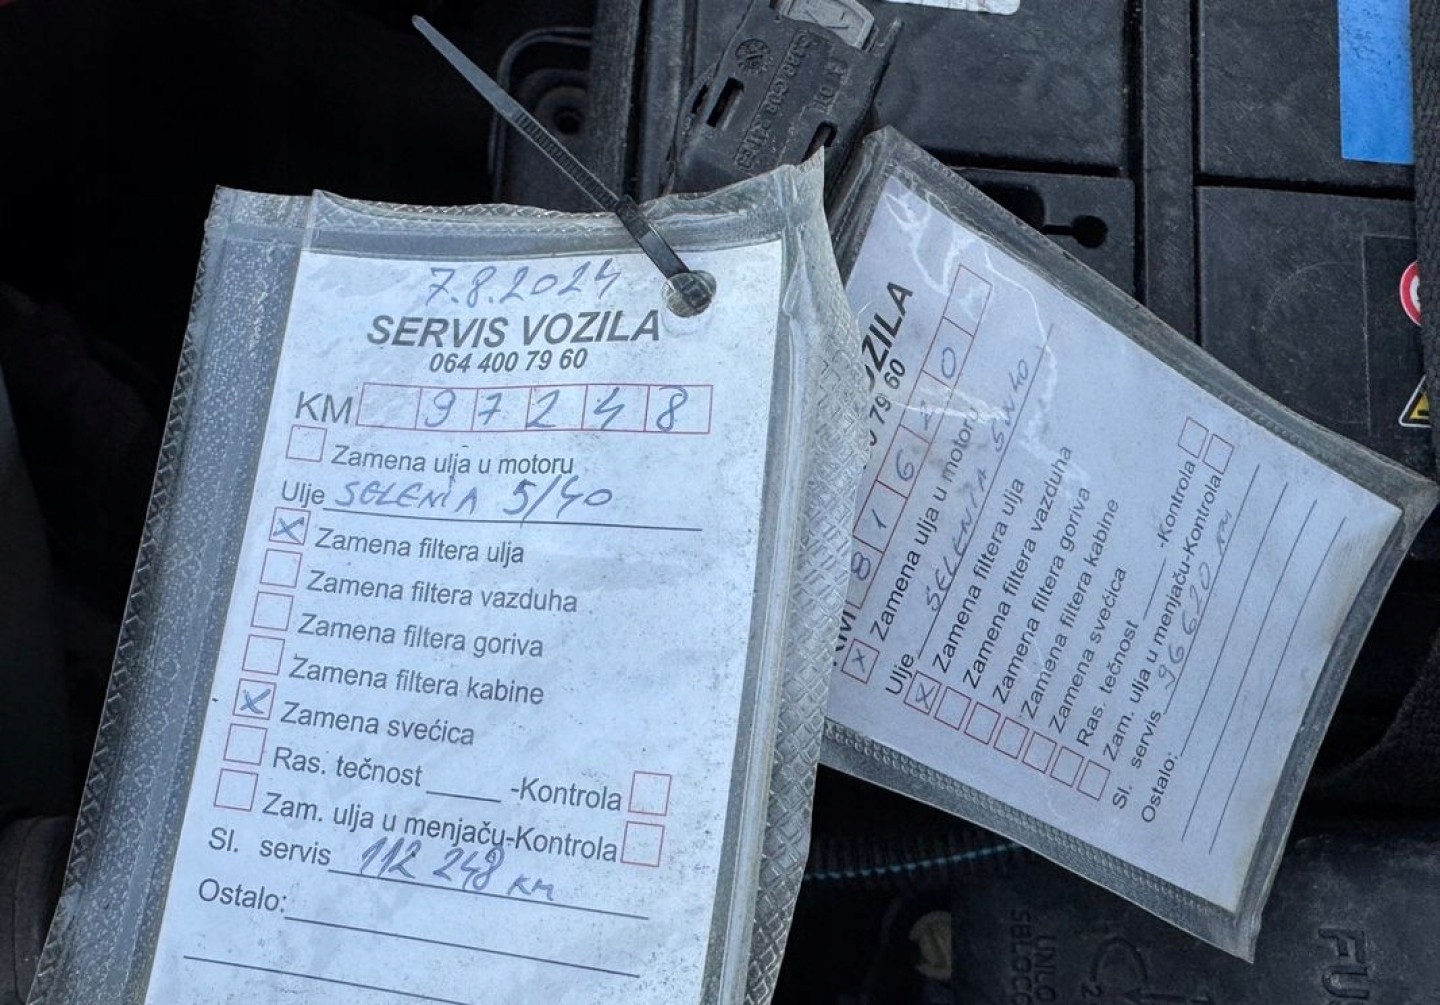 7.8.2024
SERVIS VOZILA
064 400 79 60
KM 97248
Zamena ulja u motoru
Ulje SELENIA 5/40
Zamena filtera ulja
Zamena filtera vazduha
Zamena filtera goriva
Zamena filtera kabine
Zamena svećica
Ras. tečnost -Kontrola
Zam. ulja u menjaču-Kontrola
Sl. servis 112 248 км
Ostalo:
OZILA
79 60
Zamena ulja u motoru
Ulje SELENIA 5W40
Zamena filtera ulja
Zamena filtera vazduha
Zamena filtera goriva
Zamena filtera kabine
Zamena svećica
Ras. tečnost -Kontrola
Zam. ulja u menjaču-Kontrola
Sl. servis 96620 км
Ostalo:
FU